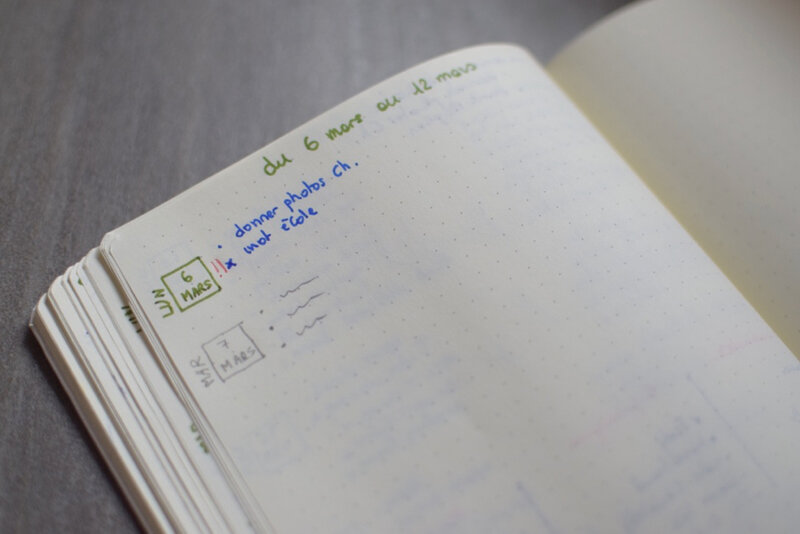 du 6 mars au 12 mars
• donner photos ch.
!! x mot école
LUN
6
MARS
MAR
7
MARS